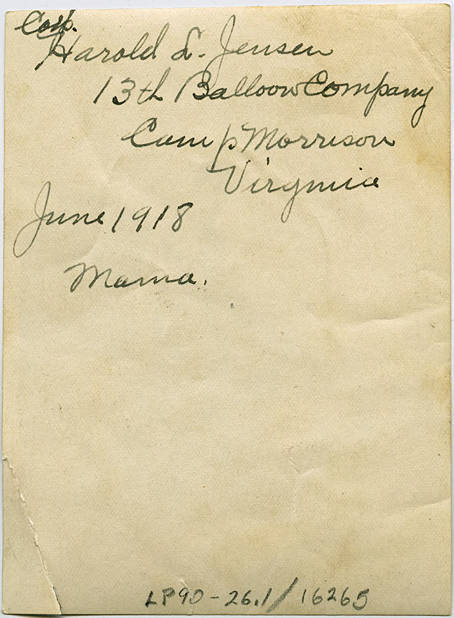 Corp.
Harold L. Jensen
13th Balloon Company
Camp Morrison
Virginia
June 1918
Mama.
LP90-26.1/16265